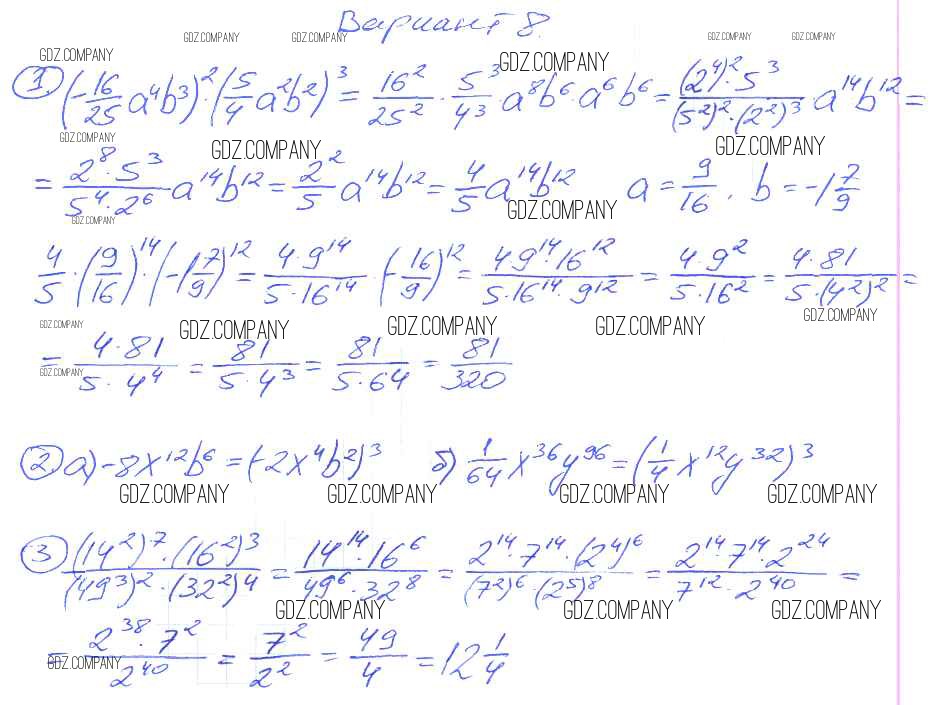 Вариант 8.
GDZ.COMPANY GDZ.COMPANY GDZ.COMPANY GDZ.COMPANY GDZ.COMPANY GDZ.COMPANY
① (-16/25 a⁴b³)²·(5/4 a²b²)³ = 16²/25² · 5³/4³ · a⁸b⁶·a⁶b⁶ = (2⁴)²·5³/(5²)²·(2²)³ a¹⁴b¹² =
GDZ.COMPANY GDZ.COMPANY GDZ.COMPANY
= 2⁸·5³/5⁴·2⁶ a¹⁴b¹² = 2²/5 a¹⁴b¹² = 4/5 a¹⁴b¹² a = 9/16, b = -1 7/9
GDZ.COMPANY GDZ.COMPANY
4/5 · (9/16)¹⁴ · (-1 7/9)¹² = 4·9¹⁴/5·16¹⁴ · (-16/9)¹² = 4·9¹⁴·16¹²/5·16¹⁴·9¹² = 4·9²/5·16² = 4·81/5·(4²)² =
GDZ.COMPANY GDZ.COMPANY GDZ.COMPANY GDZ.COMPANY GDZ.COMPANY
= 4·81/5·4⁴ = 81/5·4³ = 81/5·64 = 81/320
GDZ.COMPANY
② а) -8x¹²b⁶ = (-2x⁴b²)³ б) 1/64 x³⁶y⁹⁶ = (1/4 x¹²y³²)³
GDZ.COMPANY GDZ.COMPANY GDZ.COMPANY GDZ.COMPANY
③ (14²)⁷·(16²)³/(49³)²·(32²)⁴ = 14¹⁴·16⁶/49⁶·32⁸ = 2¹⁴·7¹⁴·(2⁴)⁶/(7²)⁶·(2⁵)⁸ = 2¹⁴·7¹⁴·2²⁴/7¹²·2⁴⁰ =
GDZ.COMPANY GDZ.COMPANY GDZ.COMPANY
= 2³⁸·7²/2⁴⁰ = 7²/2² = 49/4 = 12 1/4
GDZ.COMPANY